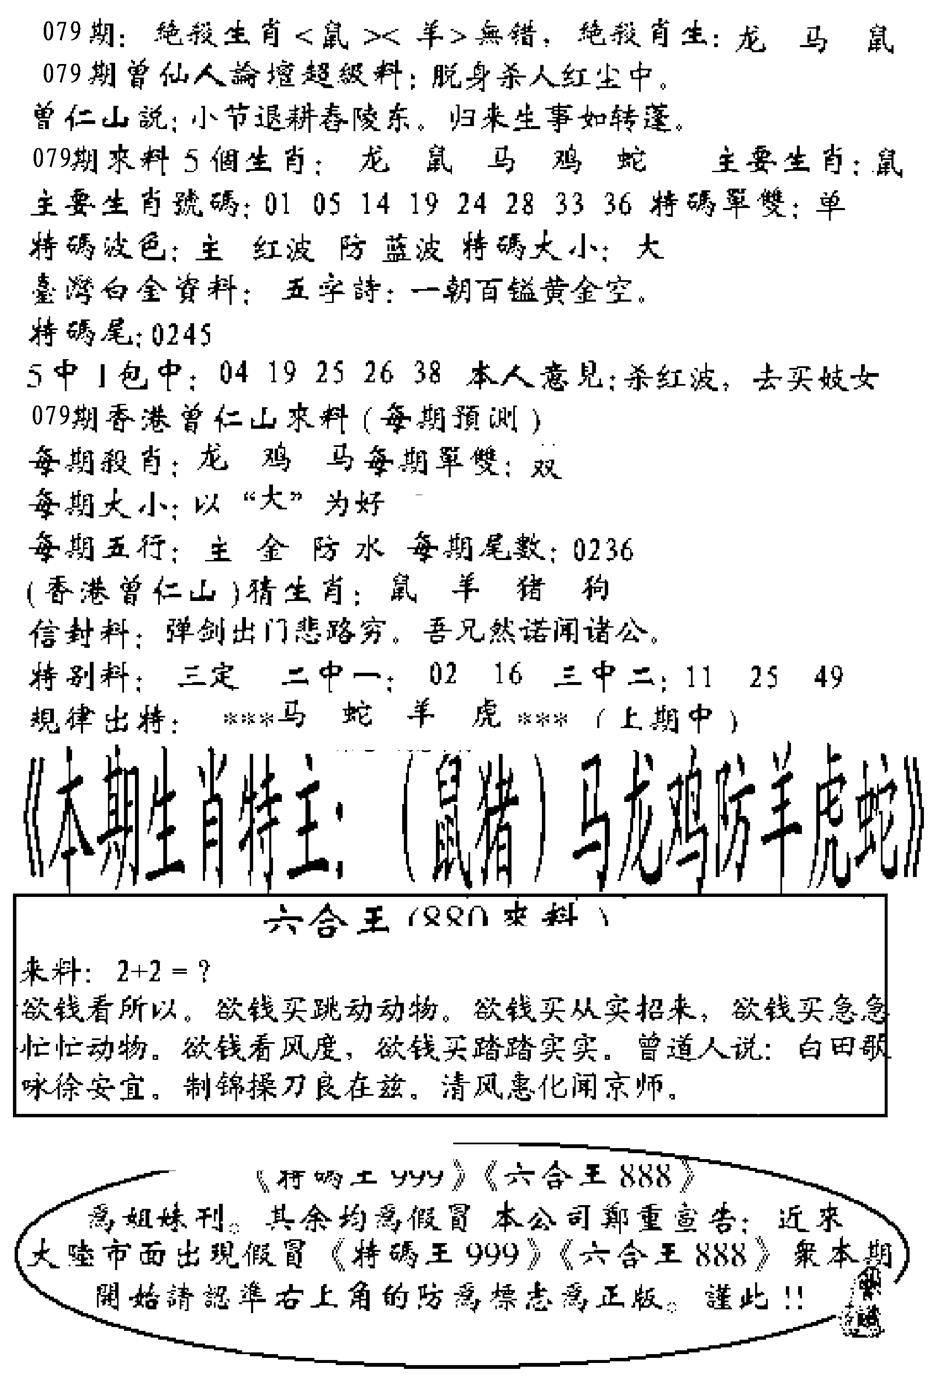 079期：绝殺生肖<鼠><羊>無错，绝殺肖生：龙 马 鼠
079期曾仙人論壇超級料：脱身杀人红尘中。
曾仁山説：小节退耕春陵东。归来生事如转蓬。
079期來料5個生肖：龙 鼠 马 鸡 蛇 主要生肖：鼠
主要生肖號碼：01 05 14 19 24 28 33 36 特碼單雙：单
特碼波色：主 红波 防 蓝波 特碼大小：大
臺灣白金資料：五字詩：一朝百镒黄金空。
特碼尾：0245
5中1包中：04 19 25 26 38 本人意見：杀红波，去买妓女
079期香港曾仁山來料（每期預測）
每期殺肖：龙 鸡 马每期單雙：双
每期大小：以“大”为好
每期五行：主 金 防 水 每期尾數：0236
(香港曾仁山)猜生肖：鼠 羊 猪 狗
信封料：弹剑出门悲路穷。吾兄然诺闻诸公。
特别料：三定 二中一：02 16 三中二：11 25 49
規律出特：***马 蛇 羊 虎***（上期中）
《本期生肖特主：（鼠猪）马龙鸡防羊虎蛇》
六合王(880來料)
来料：2+2=？
欲钱看所以。欲钱买跳动动物。欲钱买从实招来，欲钱买急急
忙忙动物。欲钱看风度，欲钱买踏踏实实。曾道人说：白田歌
咏徐安宜。制锦操刀良在兹。清风惠化闻京师。
《特碼王999》《六合王888》
爲姐妹刊。其余均爲假冒 本公司鄭重宣告：近來
大陸市面出現假冒《特碼王999》《六合王888》衆本期
開始請認準右上角的防爲標志爲正版。謹此!!